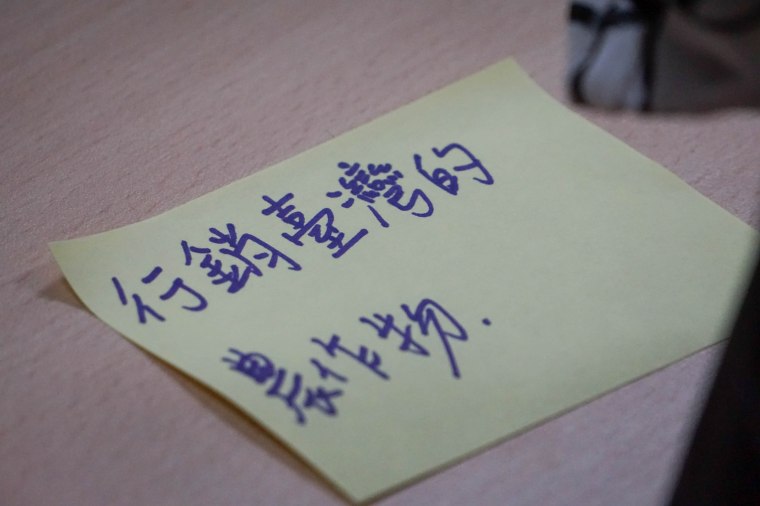 行銷臺灣的
農作物.